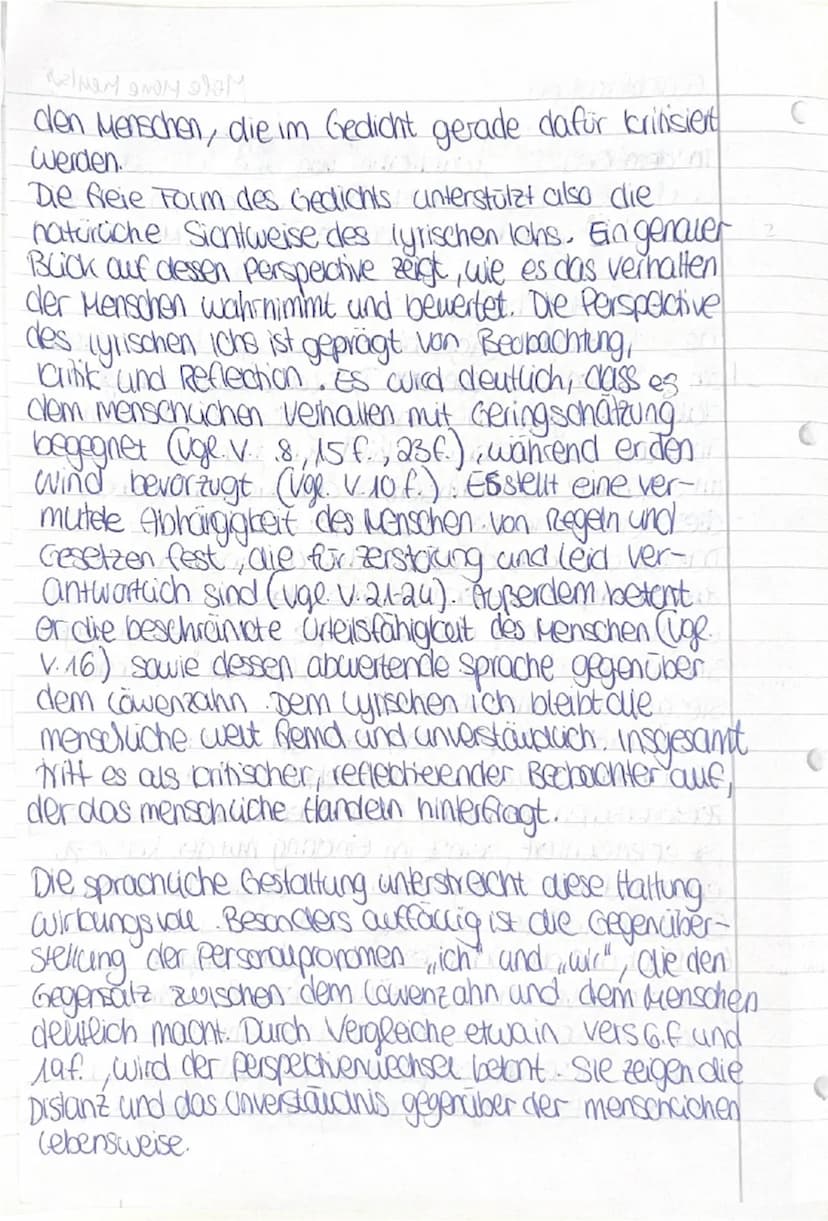 den Menschen, die im Gedicht gerade dafür kritisiert
werden.
Die freie Form des Gedichts unterstützt also die
natürliche Sichtweise des lyrischen Ichs. Ein genauer
Blick auf dessen Perspektive zeigt, wie es das Verhalten
der Menschen wahrnimmt und bewertet. Die Perspektive
des lyrischen Ichs ist geprägt von Beobachtung,
Kritik und Reflection. Es wird deutlich, dass es
dem menschlichen Verhalten mit Geringschätzung
begegnet (Vgl. V. 8, 15 f., 23f.), während er den
Wind bevorzugt (Vgl. V. 10 f.). Es stellt eine ver-
mutete Abhängigkeit des Menschen von Regeln und
Gesetzen fest, die für Zerstörung und Leid ver-
antwortlich sind (Vgl. V. 21-24). Außerdem betont
er die beschränkte Urteilsfähigkeit des Menschen (Vgl.
V. 16) sowie dessen abwertende Sprache gegenüber
dem Löwenzahn. Dem lyrischen Ich bleibt die
menschliche Welt fremd und unverständlich. Insgesamt
tritt es als kritischer, reflectierender Beobachter auf,
der das menschliche Handeln hinterfragt.
Die sprachliche Gestaltung unterstreicht diese Haltung
wirkungsvoll. Besonders auffällig ist die Gegenüber-
stellung der Personalpronomen „ich" und „wir", die den
Gegensatz zwischen dem Löwenzahn und dem Menschen
deutlich macht. Durch Vergleiche etwa in Vers 6.f und
19f., wird der Perspectivenwechsel betont. Sie zeigen die
Distanz und das Unverständnis gegenüber der menschlichen
Lebensweise.